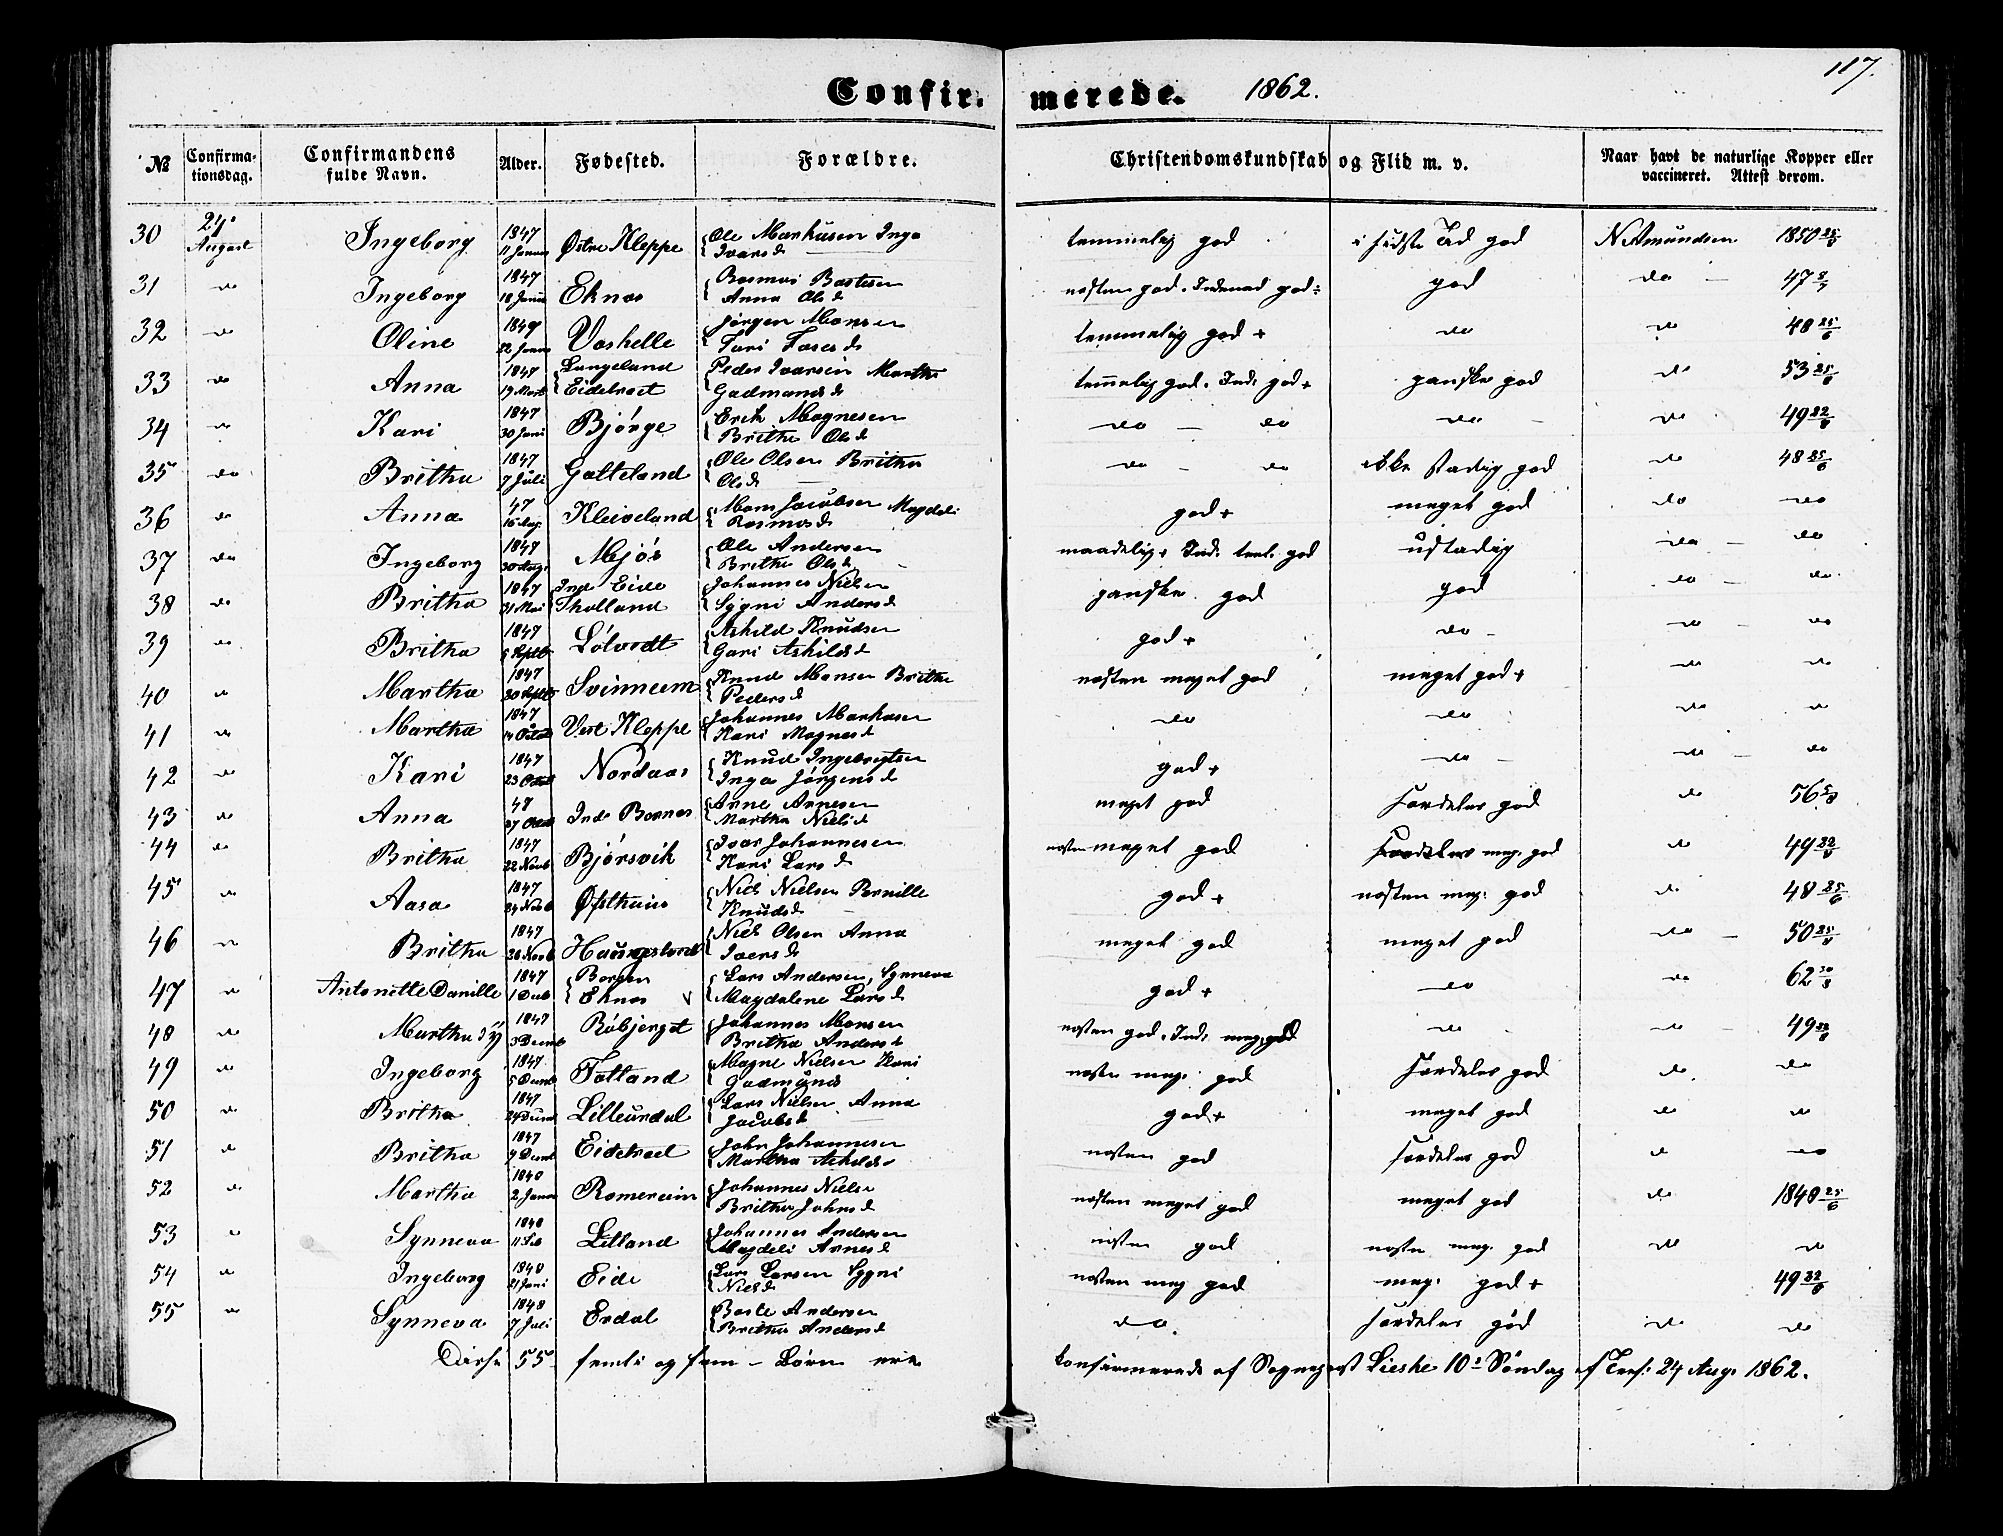 117.
Confirmerede. 1862.
№ Confirmationsdag. Confirmandens fulde Navn. Alder. Fødested. Forældre. Christendomskundskab og Flid m. v. Naar havt de naturlige Kopper eller vaccineret. Attest derom.
30 24. August Ingeborg 1847 11 Januar Østre Kleppe Ole Markusen Inga Ivarsd temmelig god i sidste Tid god N Amundsen 1850 25/5
31 do Ingeborg 1847 18 Eknæs Rasmus Bastesen Anna Olsd næsten god. Indenad god do 47
32 do Oline 1847 22 Janr Voshelle Jørgen Monsen temmelig god + do do 48 25/6
33 do Anna 1847 17 Mart Langeland Eidetvedt Peder Ivarsen Martha Gudmundsd temmelig god. Ind: god + ganske god do 53 25/6
34 do Kari 1847 30 Juni Bjørge Erik Magnesen Britha Olsd do do do do 49 22/8
35 do Britha 1847 7 Juli Galteland Ole Olsen Britha Olsd do do ikke stadig god do 48 25/6
36 do Anna 47 16 Aug. Kleiveland Mons Jacobsen Magdeli Rasmusd god + meget god do do
37 do Ingeborg 1847 30 Aug. Mjøs Ole Andersen Britha Olsd maadelig. Ind: teml. god ustadig do do
38 do Britha 1847 31 Mai Ind Eide Johannes Nielsen Sygni Andersd ganske god god do do
39 do Britha 1847 Septb Lølvedt Askild Knudsen Guri Askildsd god + do do do
40 do Martha 1847 30 Septb Svinneim Knud Monsen Britha Pedersd næsten meget god meget god + do do
41 do Martha 1847 14 Octob Vest Kleppe Johannes Markusen Kari Magnesd do do do do
42 do Kari 1847 23 Octob Nordaas Knud Ingebrigtsen Inga Jørgensd god + do do do
43 do Anna 48 27 Octob Ind Bornes Arne Arnesen Martha Nielsd meget god særdeles god do 56
44 do Britha 1847 22 Novb Bjørsvik Ivar Johannesen Kari Larsd næsten meget god særdeles meg. god do 49 22/8
45 do Aasa 1847 24 Novb Østhuus Niels Nielsen Pernille Knudsd god + næsten meg: god do 48 25/6
46 do Britha 1847 28 Novb Niels Olsen Anna Iversd meget god meget god do 50 25/8
47 do Antonette Danille 1847 1 Decb Borgen Eknæs Lars Andersen, Synneva Magdalene Larsd god + do do 62 30/8
48 do Martha 1847 3 Decemb Røbjerget Johannes Monsen Britha Andersd næsten god. Ind: meg. god do do 49 22/8
49 do Ingeborg 1847 5 Decemb Totland Magne Nielsen Kari Gudmunds næsten meg. god særdeles god do do
50 do Britha 1847 24 Decemb Lilleurdal Lars Nielsen Anna Jacobsd god + meget god do do
51 do Britha 1847 9 Decemb Eidetvedt John Johannesen Martha Askildsd næsten god særdeles god do do
52 do Martha 1848 2 Januar Romereim Johannes Nielsen Britha Johnsd næsten meget god meget god do 1848 25/6
53 do Synneva 1848 11 Feb Litland Johannes Andersen Magdeli Arnesd næsten god næsten meg. god do do
54 do Ingeborg 1848 21 Juni Eide Lars Larsen Sygni Nielsd næsten meg god meg: god + 49 22/8
55 do Synneva 1848 7 Juli Erdal Baste Andersen Britha Andersd do. særdeles god do do
Disse 55 femti og fem – Børn ere konfirmerede af Sognepræst Lieske 10de Søndag ef Tref: 24 Aug. 1862.